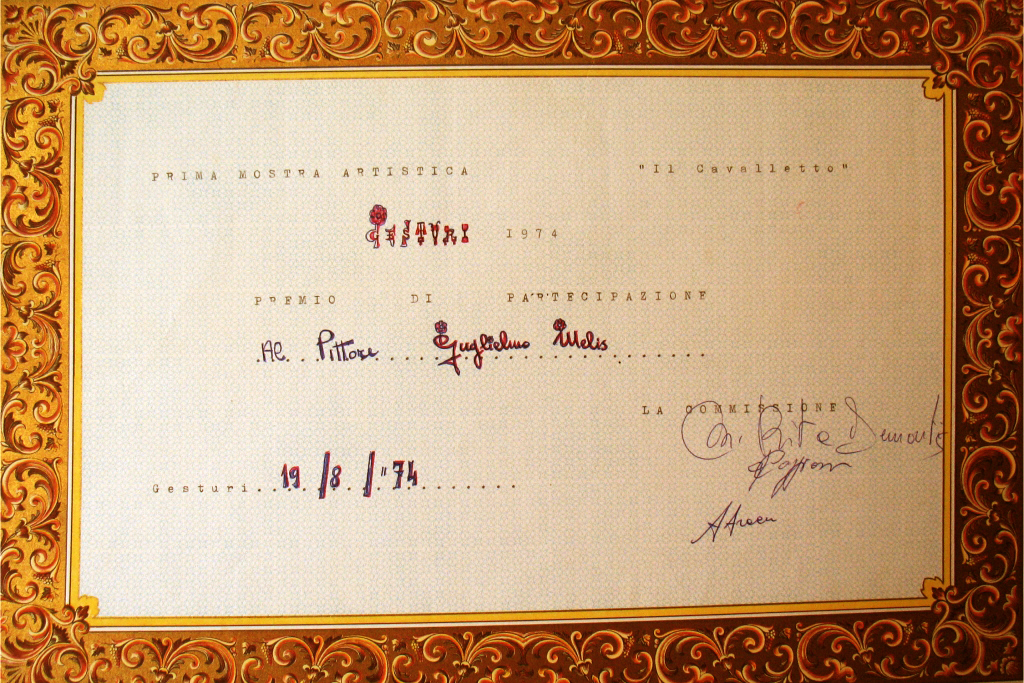 PRIMA MOSTRA ARTISTICA "Il Cavalletto"
GESTURI 1974
PREMIO DI PARTECIPAZIONE
.Al Pittore.... Guglielmo Melis........
LA COMMISSIONE
Gesturi..19/8/"74........